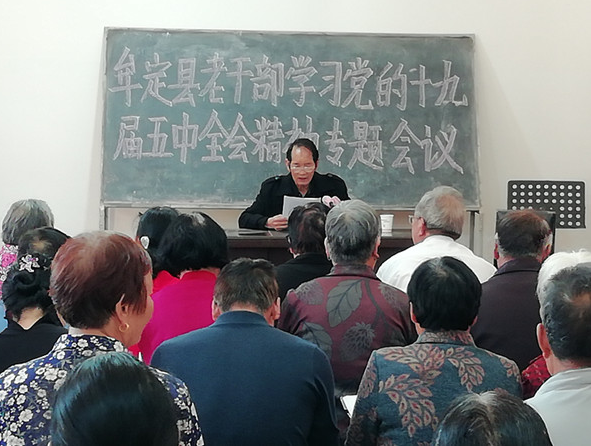 牟定县老干部学习党的十九
届五中全会精神专题会议